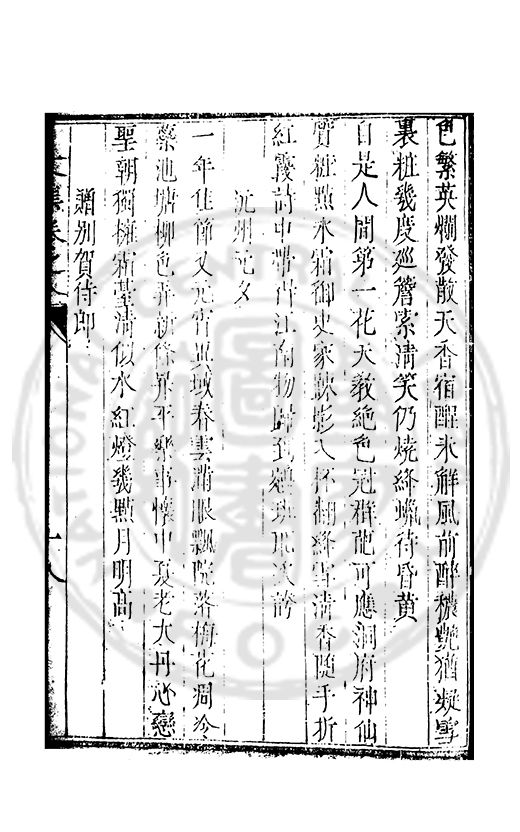 色繁英爛發散天香宿酲未解風前醉穠艷猶凝雪
裏粧幾度廵簷索清笑仍燒絳蠟待昏黄
自是人間第一花天教絶色冠群葩可應洞府神仙
質粧點氷霜御史家踈影入杯翻絳雪清香隨手折
紅霞詩中帶得江南物歸到班
沅州元夕
一年佳節又元宵異域春雲滿眼飄院落梅花凋
池塘柳色弄新條昇平樂事懷中夏老大丹心戀
聖朝獨擁霜臺清似水紅燈幾點月明高
贈别賀侍郎